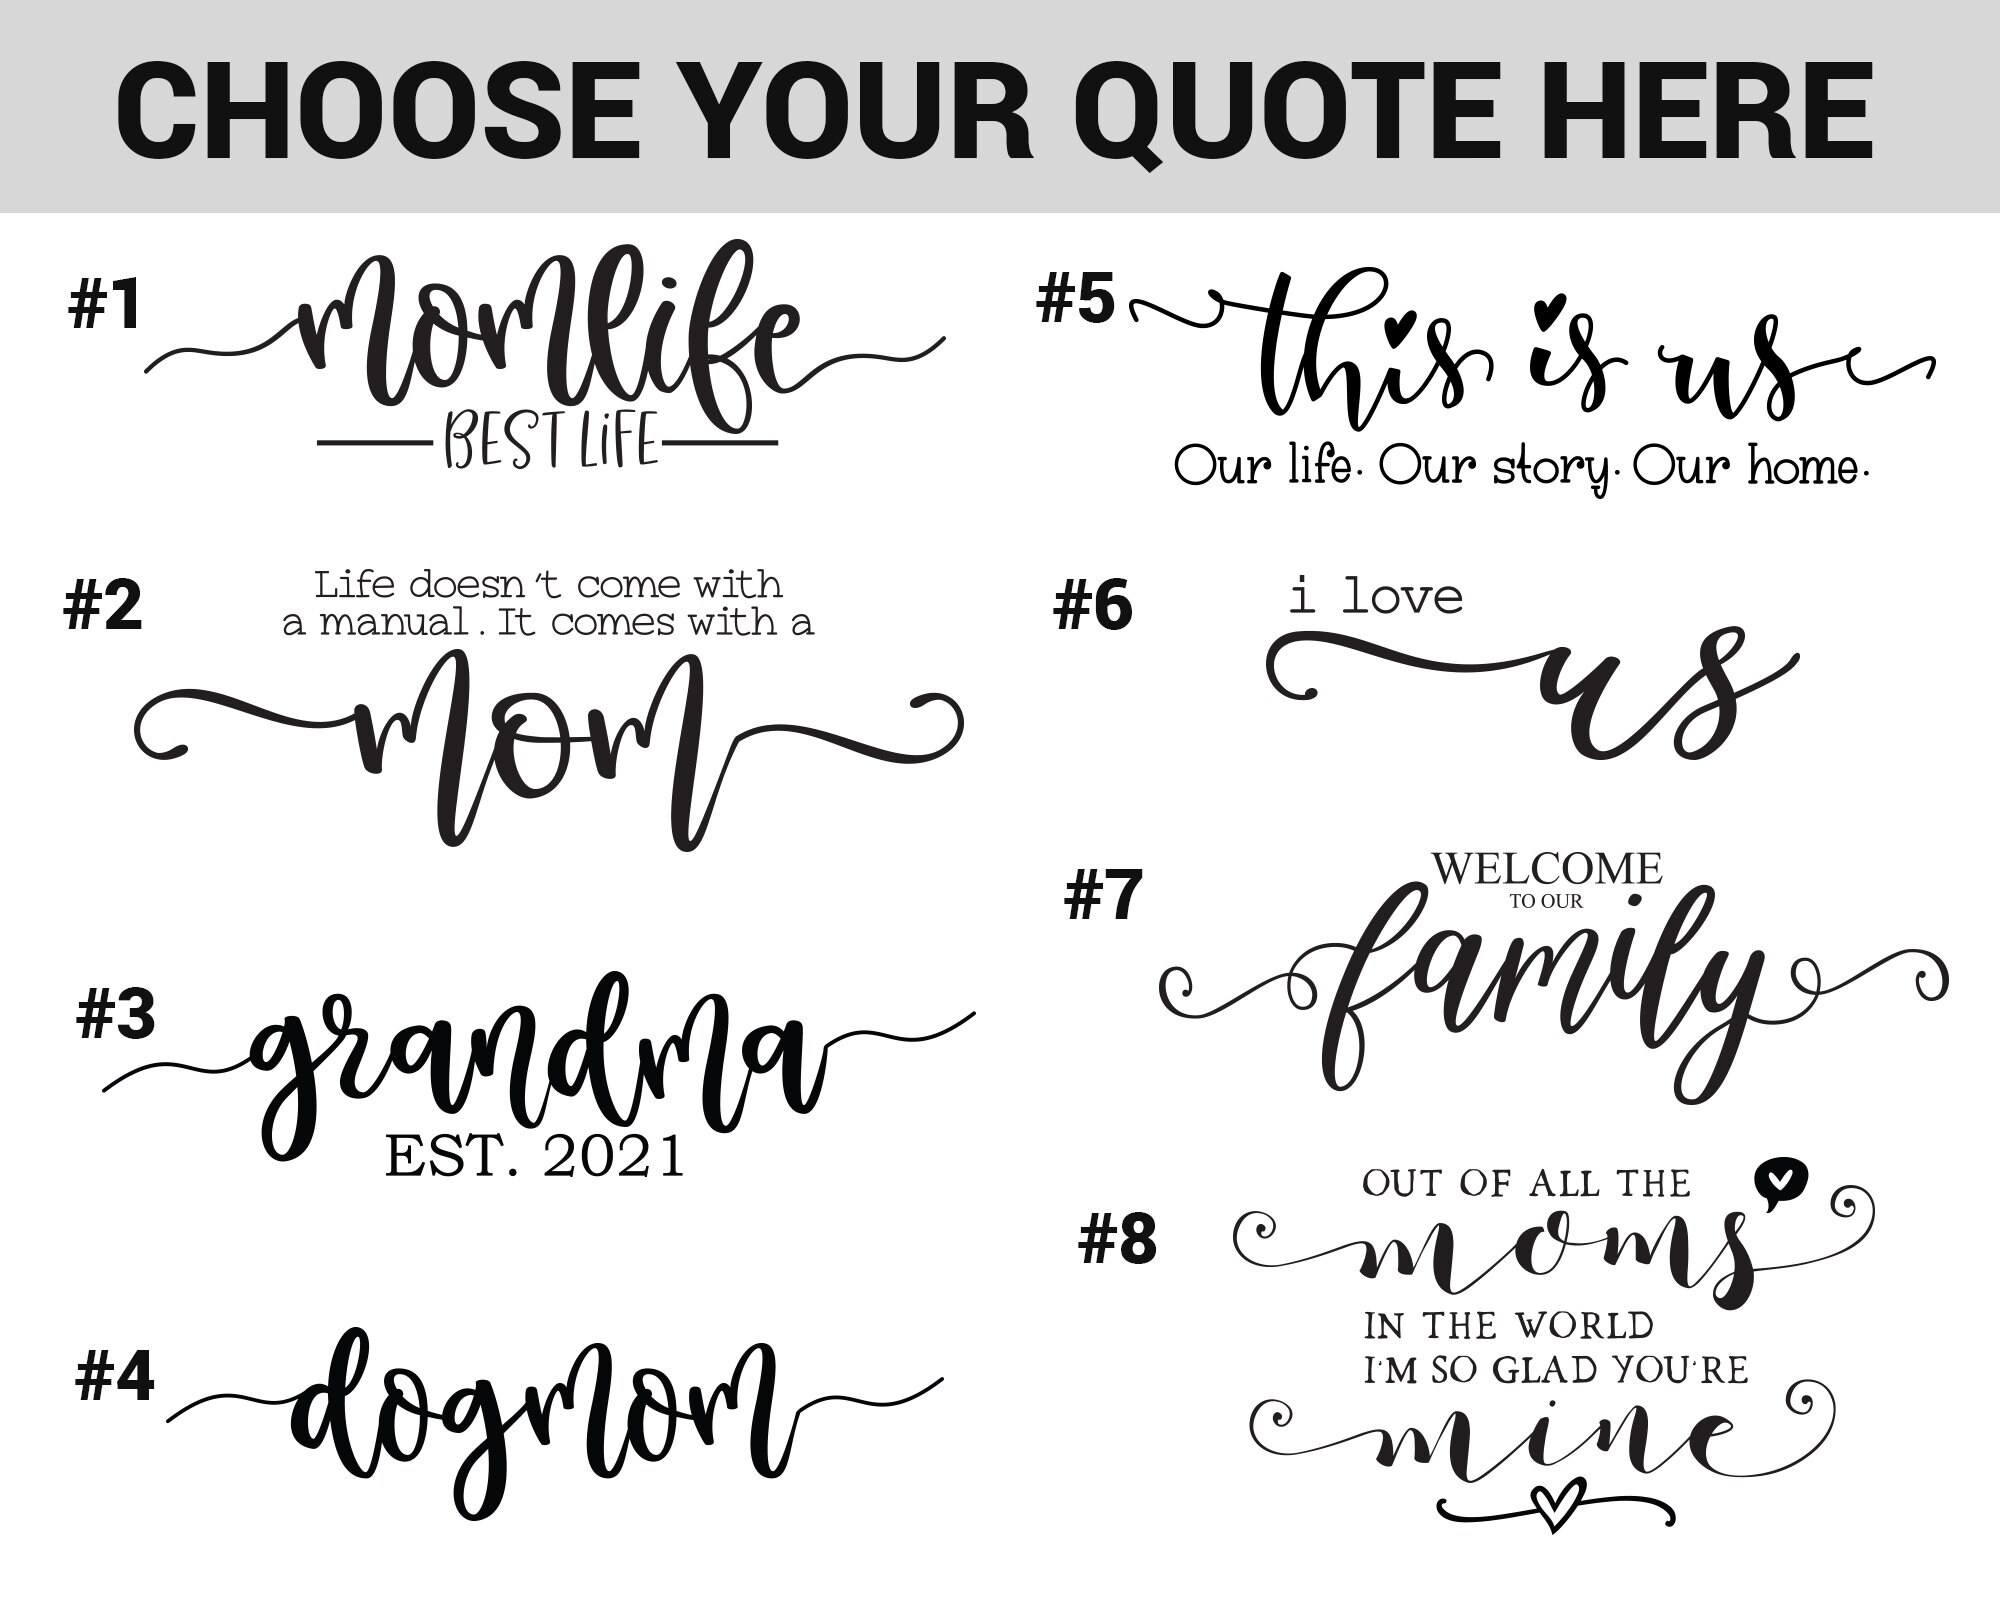 CHOOSE YOUR QUOTE HERE
#1
momlife
BEST LiFE
#2
Life doesn't come with
a manual. It comes with a
mom
#3
grandma
EST. 2021
#4
dogmom
#5
this is us
Our life. Our story. Our home.
#6
i love
us
#7
WELCOME
TO OUR
family
#8
OUT OF ALL THE
moms
IN THE WORLD
I'M SO GLAD YOU'RE
mine